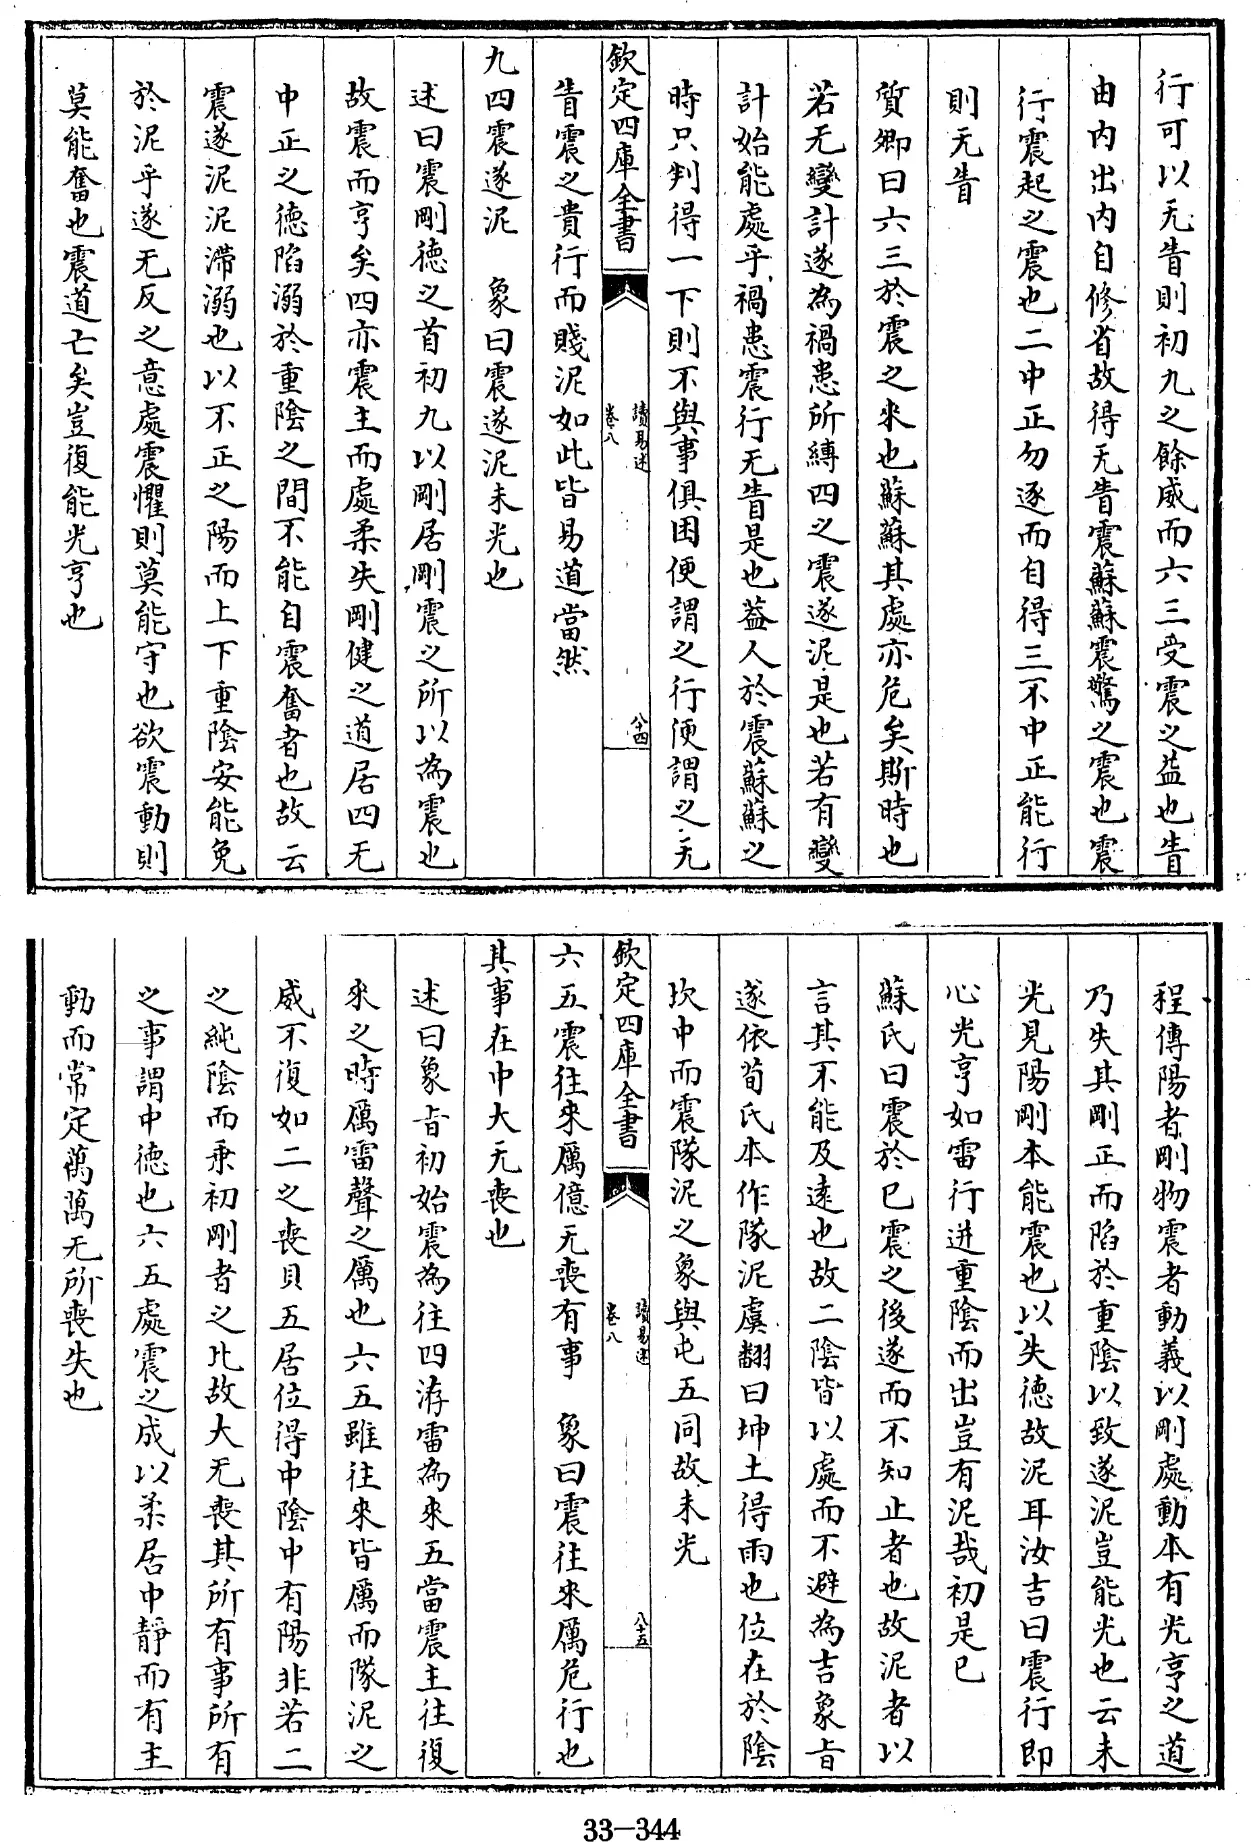 行可以无眚則初九之餘威而六三受震之益也眚
由内出内自修省故得无眚震蘇蘇震驚之震也震
行震起之震也二中正勿逐而自得三不中正能行
則无眚
質卿曰六三於震之來也蘇蘇其處亦危矣斯時也
若无變計遂為禍患所縳四之震遂泥是也若有變
計始能處乎禍患震行无眚是也葢人於震蘇蘇之
時只判得一下則不與事俱困便謂之行便謂之无
欽定四庫全書
讀易述
卷八
八十四
眚震之貴行而賤泥如此皆易道當然
九四震遂泥 象曰震遂泥未光也
述曰震剛德之首初九以剛居剛震之所以為震也
故震而亨矣四亦震主而處柔失剛健之道居四无
中正之德陷溺於重陰之間不能自震奮者也故云
震遂泥泥滯溺也以不正之陽而上下重陰安能免
於泥乎遂无反之意處震懼則莫能守也欲震動則
莫能奮也震道亡矣豈復能光亨也
程傳陽者剛物震者動義以剛處動本有光亨之道
乃失其剛正而陷於重陰以致遂泥豈能光也云未
光見陽剛本能震也以失德故泥耳汝吉曰震行即
心光亨如雷行迸重陰而出豈有泥哉初是已
蘇氏曰震於已震之後遂而不知止者也故泥者以
言其不能及逺也故二陰皆以處而不避為吉象㫖
遂依荀氏本作隊泥虞翻曰坤土得雨也位在於陰
坎中而震隊泥之象與屯五同故未光
欽定四庫全書
讀易述
卷八
八十五
六五震往來厲億无喪有事 象曰震往來厲危行也
其事在中大无喪也
述曰象㫖初始震為往四洊雷為來五當震主往復
來之時厲雷聲之厲也六五雖往來皆厲而隊泥之
威不復如二之喪貝五居位得中陰中有陽非若二
之純陰而乗初剛者之比故大无喪其所有事所有
之事謂中德也六五處震之成以柔居中靜而有主
動而常定萬萬无所喪失也
33-344